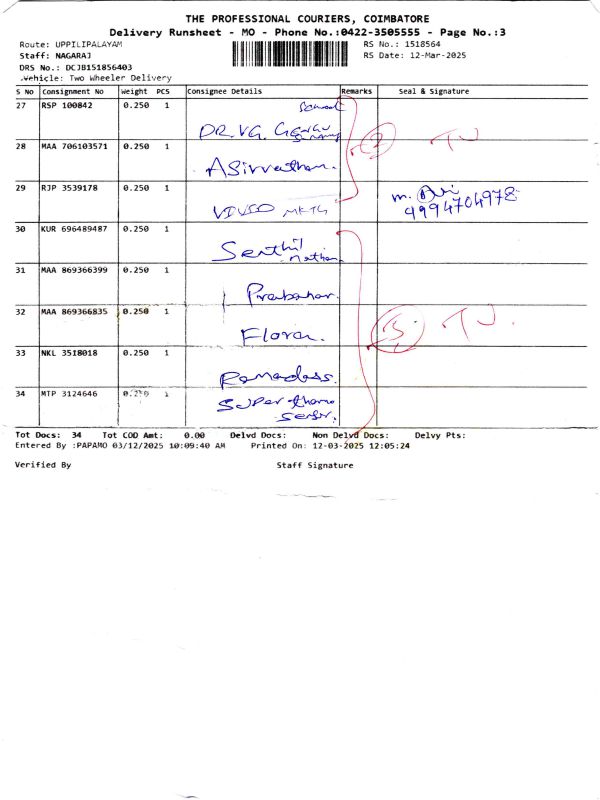 THE PROFESSIONAL COURIERS, COIMBATORE
Delivery Runsheet - MO - Phone No.:0422-3505555 - Page No.:3
Route: UPPILIPALAYAM RS No.: 1518564
Staff: NAGARAJ RS Date: 12-Mar-2025
DRS No.: DCJB151856403
Vehicle: Two Wheeler Delivery
S No Consignment No Weight PCS Consignee Details Remarks Seal & Signature
27 RSP 100842 0.250 1 School
DR.VG.
28 MAA 706103571 0.250 1 Asirvatham.
29 RJP 3539178 0.250 1 m.
VIVID MKTG 9994704978
30 KUR 696489487 0.250 1 Senthil
nathan
31 MAA 869366399 0.250 1 Prabahar.
32 MAA 869366835 0.250 1 Floran.
33 NKL 3518018 0.250 1 Ramadass.
34 MTP 3124646 0.250 1 Super
Tot Docs: 34 Tot COD Amt: 0.00 Delvd Docs: Non Delvd Docs: Delvy Pts:
Entered By :PAPAMO 03/12/2025 10:09:40 AM Printed On: 12-03-2025 12:05:24
Verified By Staff Signature